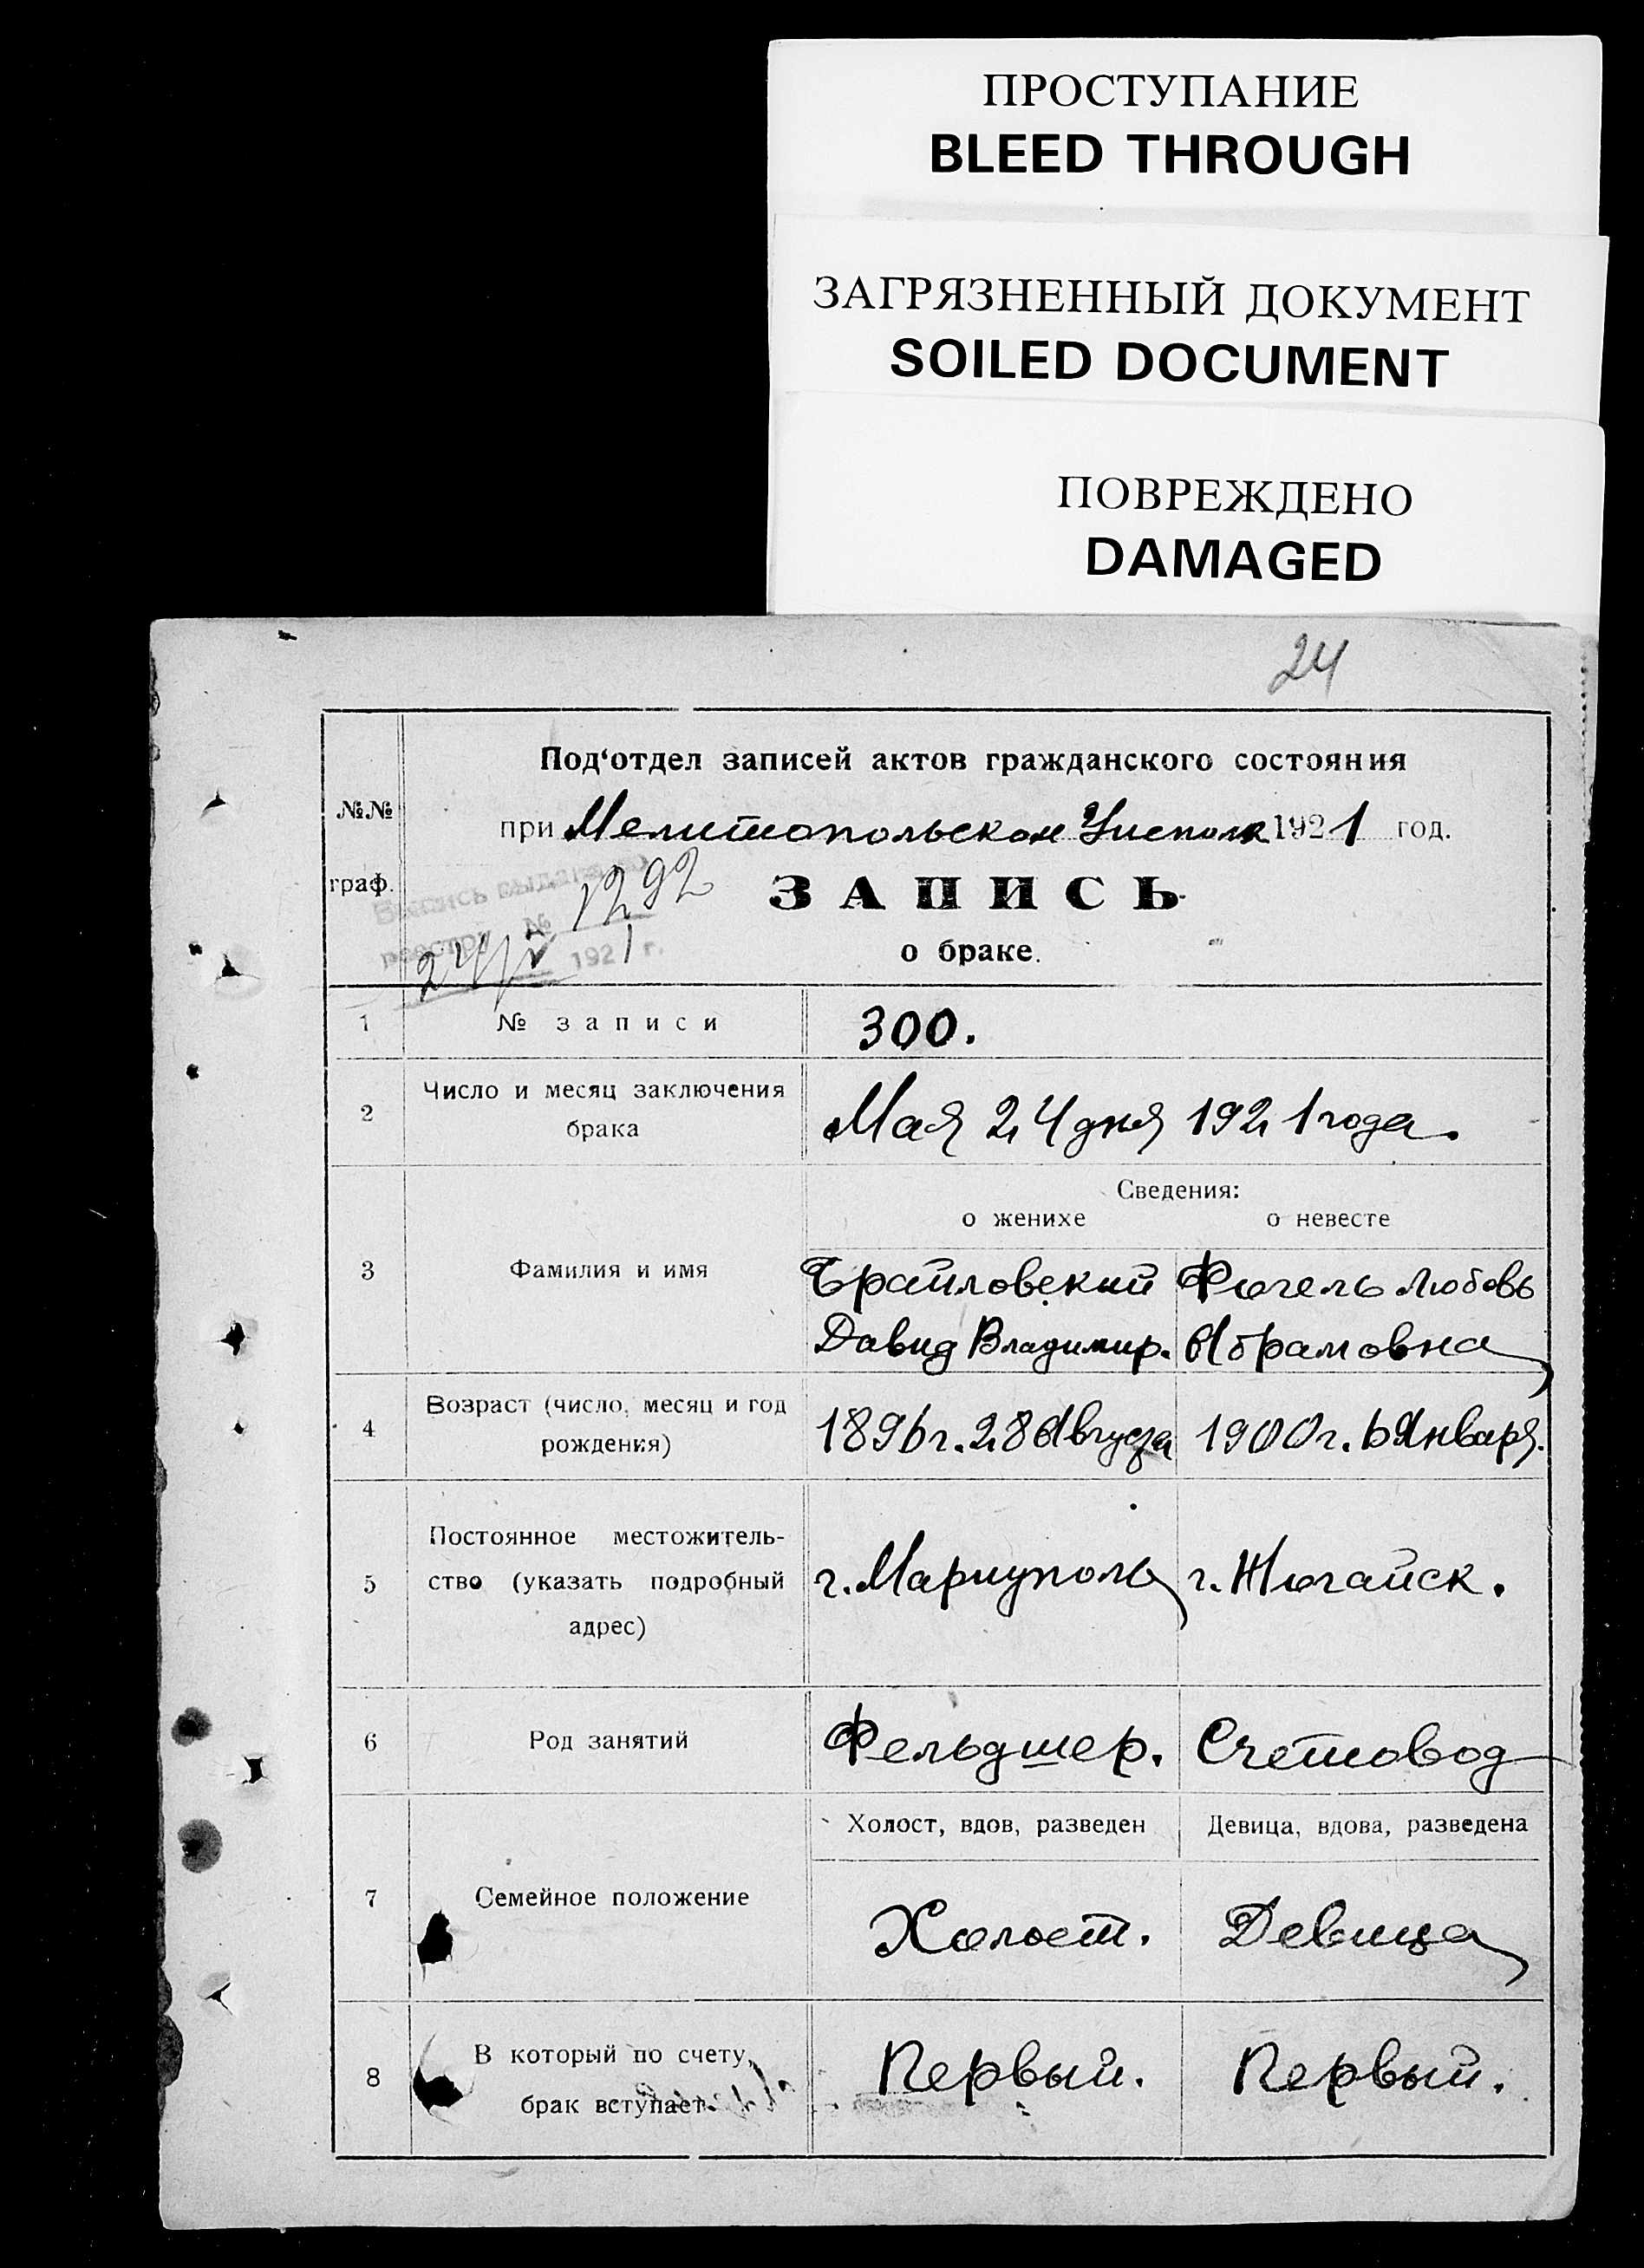 ПРОСТУПАНИЕ
BLEED THROUGH
ЗАГРЯЗНЕННЫЙ ДОКУМЕНТ
SOILED DOCUMENT
ПОВРЕЖДЕНО
DAMAGED
24
№№
граф.
Под‘отдел записей актов гражданского состояния
при Мелитопольском 1921 год.
ЗАПИСЬ
о браке.
реестру № 1292
1921 г.
1 № записи 300.
2 Число и месяц заключения
брака
Мая 24 дня 1921 года.
Сведения:
о женихе о невесте
3 Фамилия и имя
Брайловский Фигель Любовь
Давид Владимир. Абрамовна
4 Возраст (число, месяц и год
рождения)
1896 г. 28 Августа 1900 г. 6 Января.
5 Постоянное местожитель-
ство (указать подробный
адрес)
г. Мариуполь г.
6 Род занятий Фельдшер. Счетовод
Холост, вдов, разведен Девица, вдова, разведена
7 Семейное положение
Холост. Девица
8 В который по счету
брак вступает
Первый. Первый.